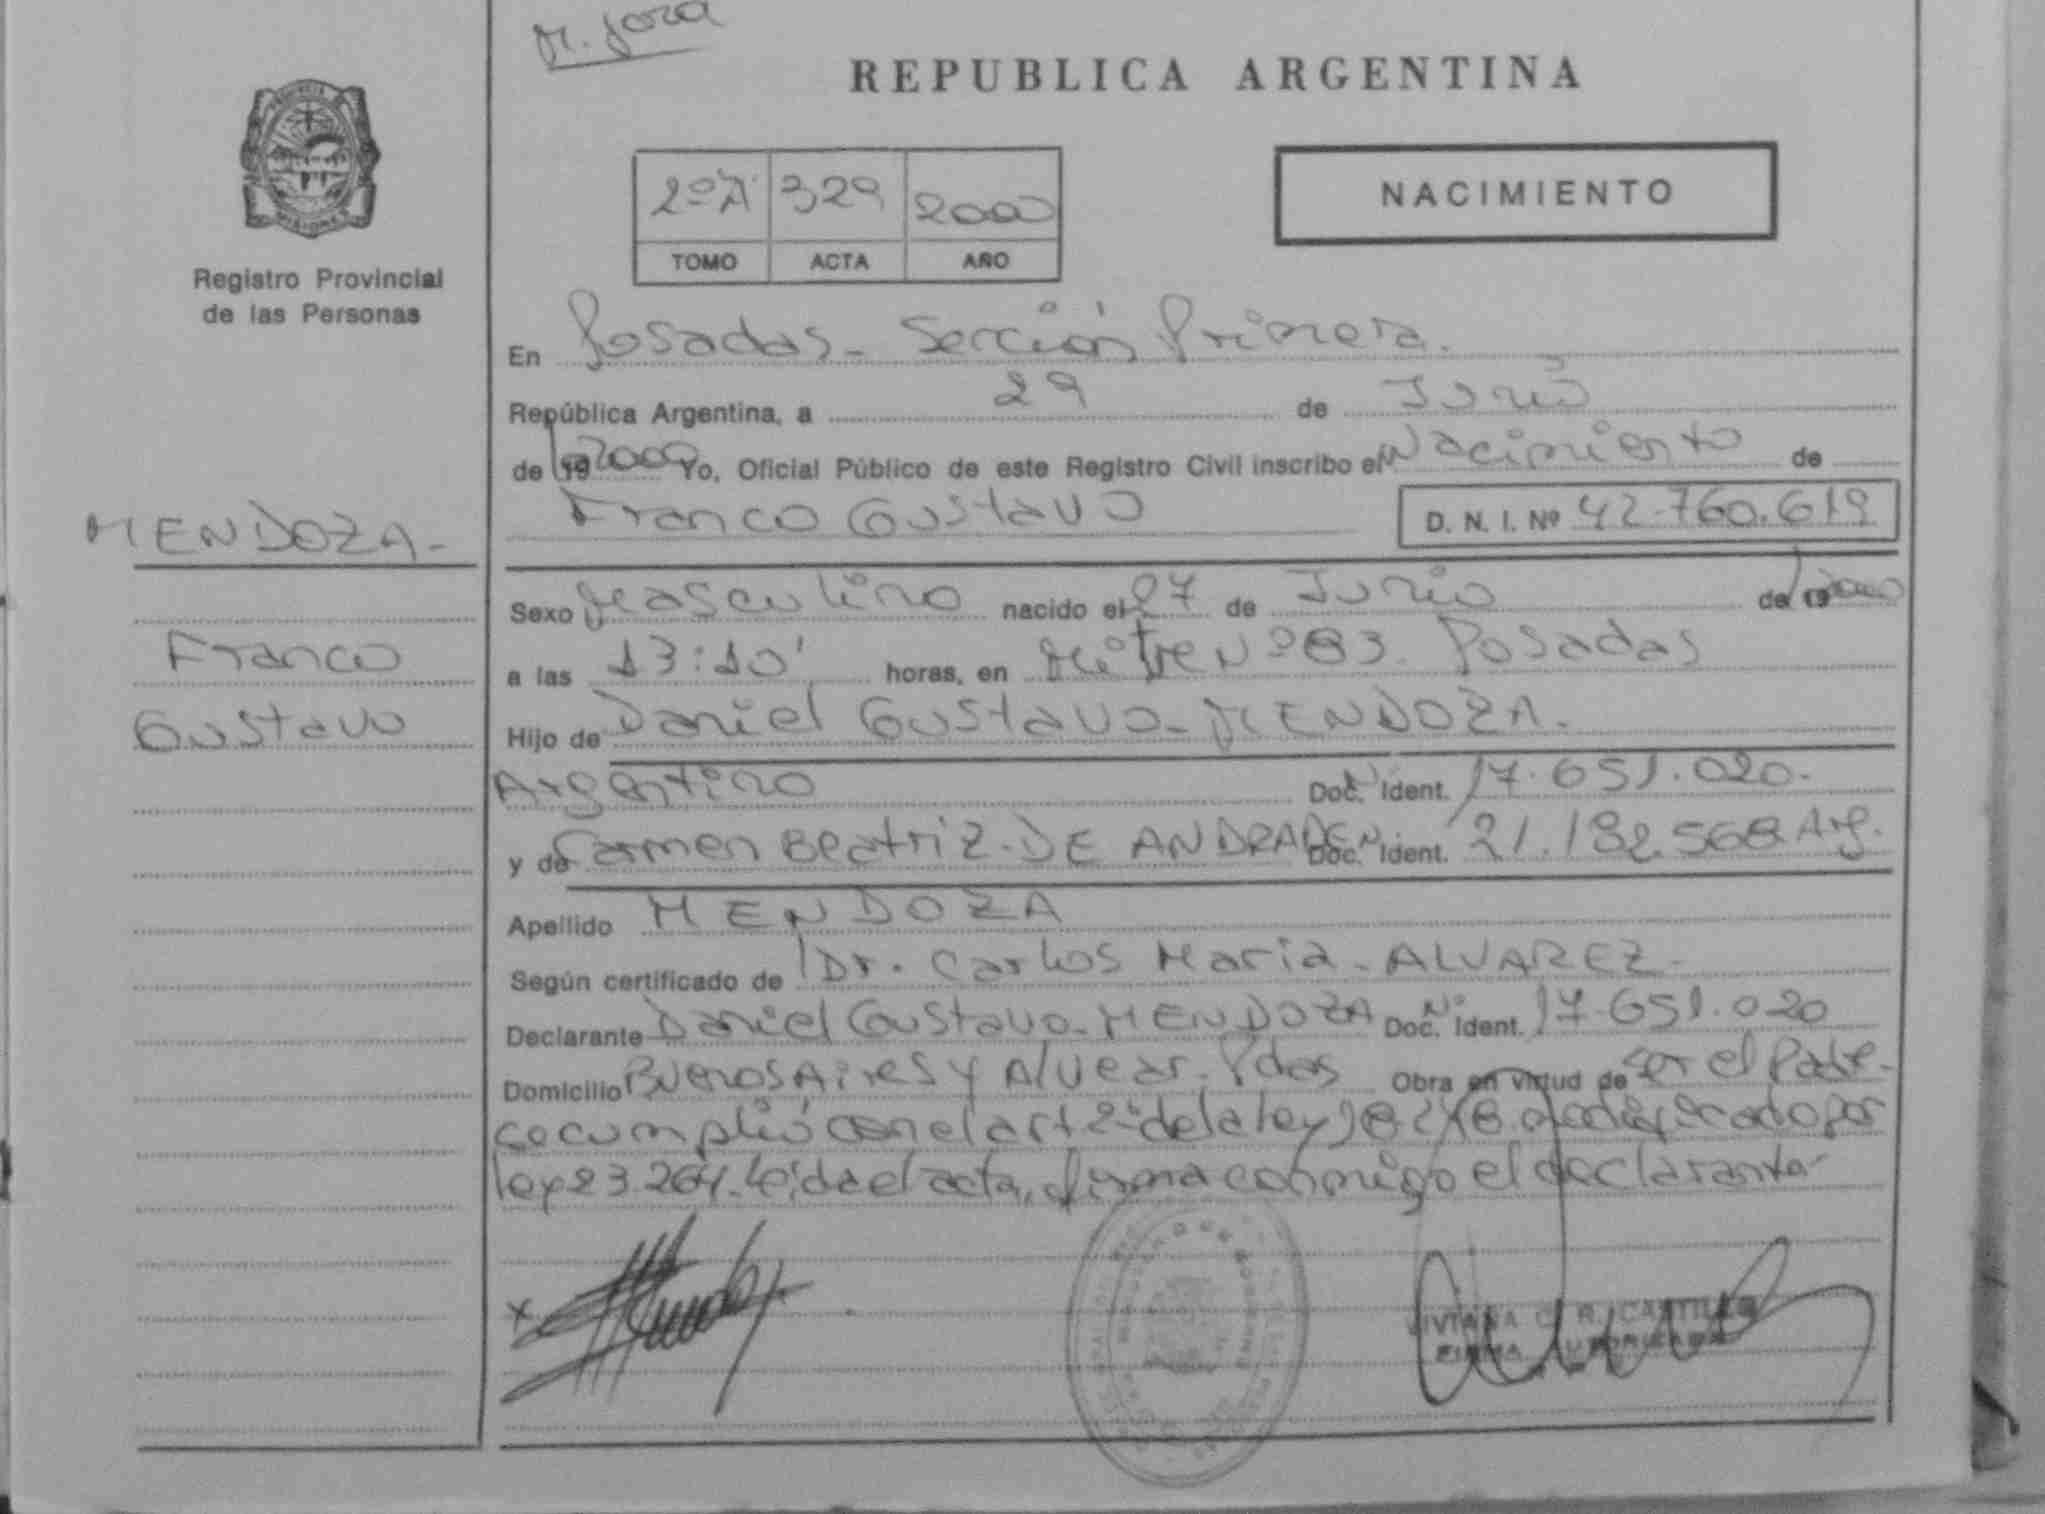 M. Jora
REPUBLICA ARGENTINA
NACIMIENTO
2º A 329 2000
TOMO ACTA AÑO
Registro Provincial
de las Personas
En Posadas - Sección Primera.
República Argentina, a 29 de Junio
de 19 2000 Yo, Oficial Público de este Registro Civil inscribo el Nacimiento de
Franco Gustavo D. N. I. Nº 42.760.619
MENDOZA-
Franco
Gustavo
Sexo Masculino nacido el 27 de Junio de 19 2000
a las 13:10' horas, en Mitre Nº 83. Posadas
Hijo de Daniel Gustavo - MENDOZA.
Argentino Doc. Nº Ident. 17.651.020.
y de Carmen Beatriz - DE ANDRADE Doc. Nº Ident. 21.182.568 Arg.
Apellido MENDOZA
Según certificado de Dr. Carlos Maria - ALVAREZ -
Declarante Daniel Gustavo - MENDOZA Doc. Nº Ident. 17.651.020
Domicilio Buenos Aires y Alvear - Pdas Obra en virtud de ser el Padre -
se cumplió con el art 2º de la ley 18.248 modificado por
ley 23.264. Leida el acta, firma conmigo el declarante -
x
VIVIANA C. R. CASTILLO
FIRMA AUTORIZADA